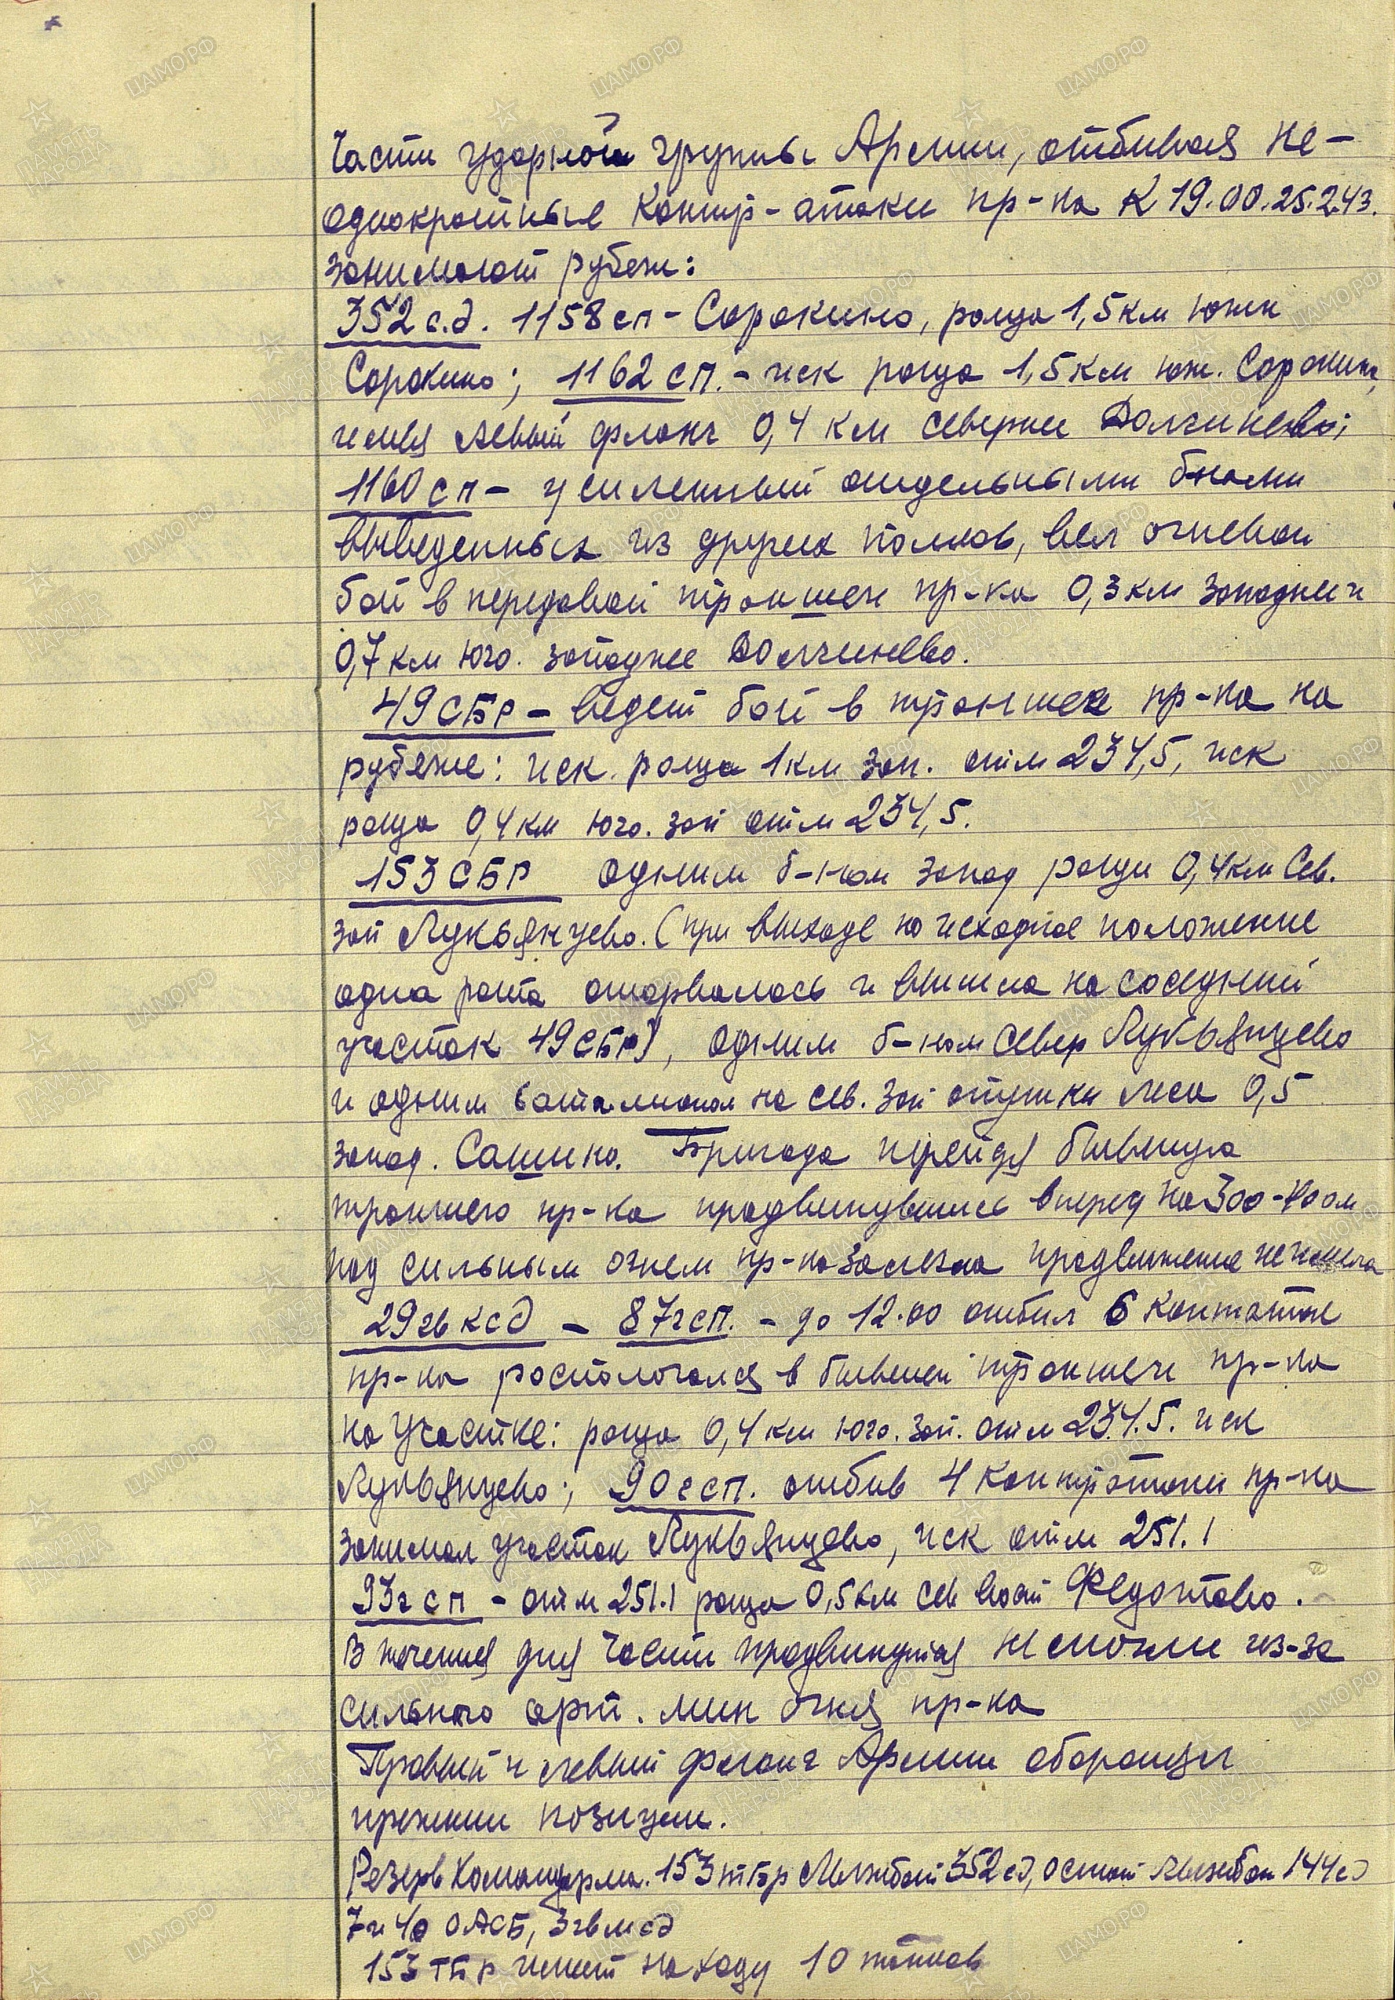 Части ударной группы Армии, отбивая не-
однократные контр-атаки пр-ка к 19.00.25.2.43.
занимают рубежи:
352 с.д. 1158 сп - Сорокино, роща 1,5 км южн
Сорокино; 1162 сп. - иск роща 1,5 км юж. Сорокино,
имея левый фланг 0,4 км севернее Долгинево;
1160 сп - усиленный отдельными б-нами
выведенных из других полков, вел огневой
бой в передовой траншеи пр-ка 0,3 км западнее и
0,7 км юго. западнее Долгинево.
49 СБР - ведет бой в траншее пр-ка на
рубеже: иск. роща 1 км зап. отм 234,5, иск
роща 0,4 км юго. зап отм 234,5.
153 СБР одним б-ном запад рощи 0,4 км Сев.
зап Лукьянцево. (при выходе на исходное положение
одна рота оторвалась и вышла на соседний
участок 49 СБР), одним б-ном север Лукьянцево
и одним баталионом на сев. зап опушки леса 0,5
запад. Сашино. Бригада перейдя бывшую
траншею пр-ка продвинувшись вперед на 300-400 м
под сильным огнем пр-ка залегла продвижения не имела
29 гв ксд - 87 гсп. - до 12.00 отбил 6 контратак
пр-ка распологался в бывшей траншеи пр-ка
на участке: роща 0,4 км юго. зап. отм 234.5. иск
Лукьянцево; 90 гсп. отбив 4 контратаки пр-ка
занимал участок Лукьянцево, иск отм 251.1
93 гсп - отм 251.1 роща 0,5 км сев вост Федотково.
В течения дня части продвинутся не смогли из-за
сильного арт. мин огня пр-ка
Правый и левый фланг Армии оборонял
прежнии позиции.
Резерв Командарма. 153 тбр 352 сд, 144 сд
7 и 40 ОЛСБ, 3 гв мсд
153 ТБР имеет на ходу 10 танков
ЦАМО.РФ
ПАМЯТЬ НАРОДА